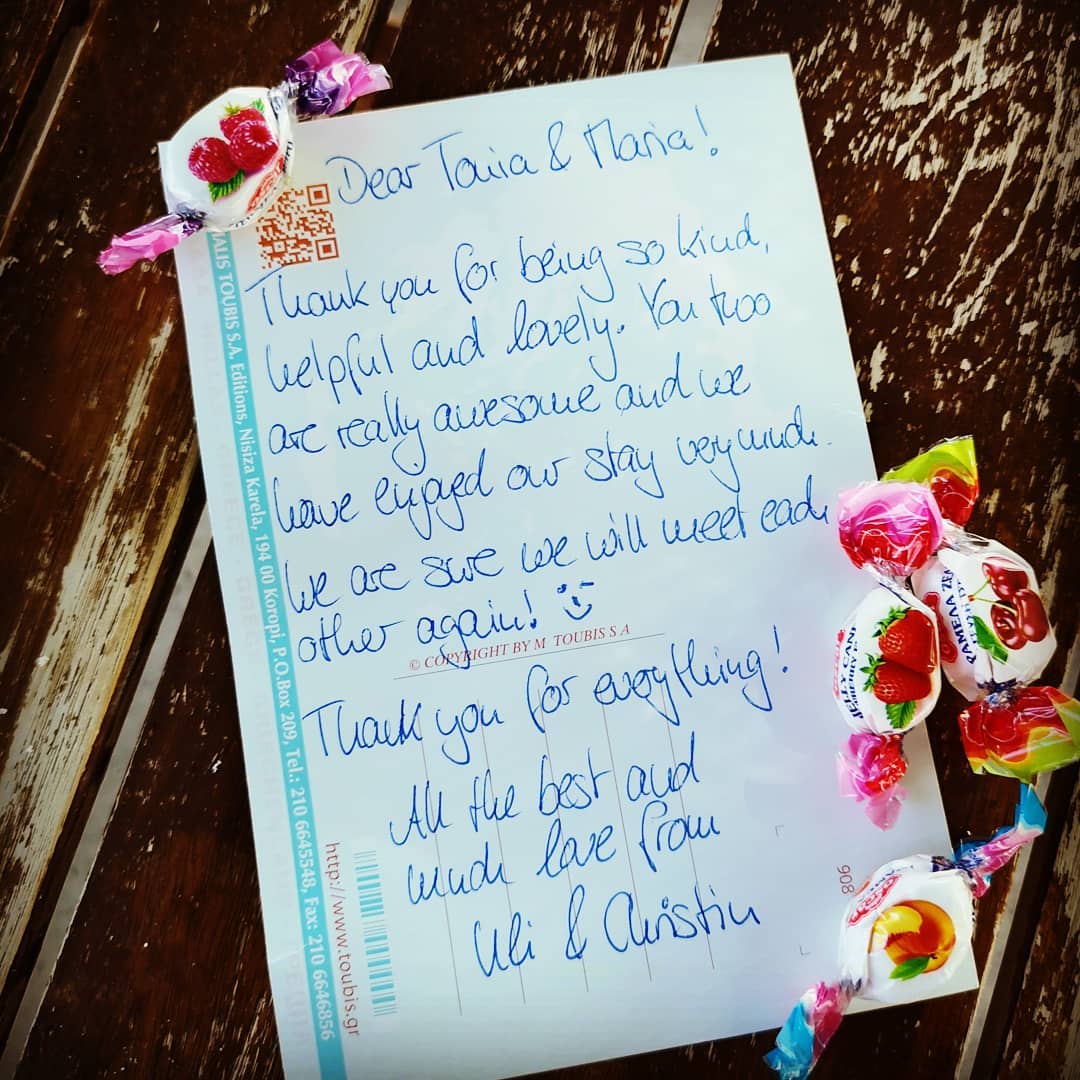 Dear Tania & Maria!
Thank you for being so kind,
helpful and lovely. You two
are really awesome and we
have enjoyed our stay very much.
We are sure we will meet each
other again!
© COPYRIGHT BY M TOUBIS S A
Thank you for everything!
All the best and
much love from
Uli & Christin
HALIS TOUBIS S.A. Editions, Nisiza Karela, 194 00 Koropi, P.O.Box 209, Tel.: 210 6645548, Fax: 210 6646856
http://www.toubis.gr
908
JELLY CAN